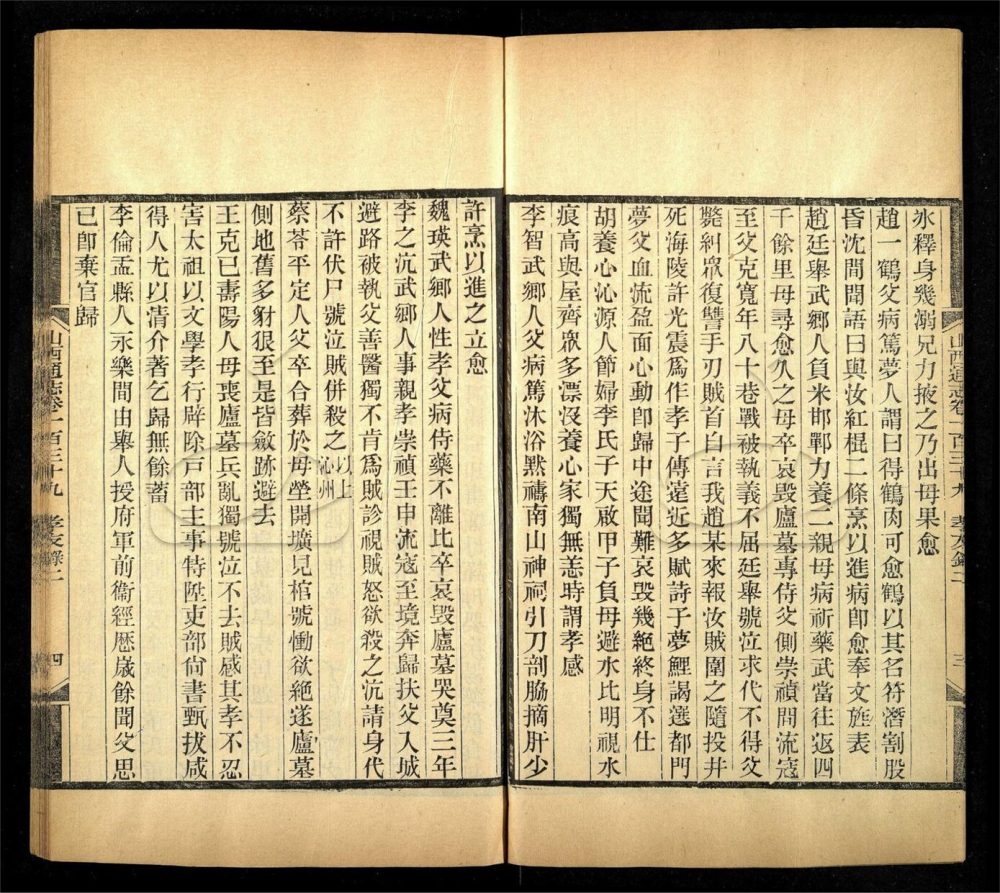 氷釋身幾溺兄力掖之乃出母果愈
趙一鶴父病篤夢人謂曰得鶴肉可愈鶴以其名符潛割股
昏沈間聞語曰與汝紅棍二條烹以進病卽愈奉文旌表
趙廷舉武鄉人負米邯鄲力養二親母病祈藥武當往返四
千餘里母尋愈久之母卒哀毀廬墓專侍父側崇禎間流寇
至父克寬年八十巷戰被執義不屈廷舉號泣求代不得父
斃糾眾復讐手刃賊首自言我趙某來報汝賊圍之隨投井
死海陵許光震爲作孝子傳遠近多賦詩子夢鯉謁選都門
夢父血流盈面心動卽歸中途聞難哀毀幾絕終身不仕
胡養心沁源人節婦李氏子天啟甲子負母避水比明視水
痕高與屋齊眾多漂沒養心家獨無恙時謂孝感
李智武鄉人父病篤沐浴默禱南山神祠引刀剖脇摘肝少
山西通志卷一百三十九　孝友錄二　三
許烹以進之立愈
魏瑛武鄉人性孝父病侍藥不離比卒哀毀廬墓哭奠三年
李之沆武鄉人事親孝崇禎壬申流寇至境奔歸扶父入城
避路被執父善醫獨不肯爲賊診視賊怒欲殺之沆請身代
不許伏尸號泣賊併殺之以上沁州
蔡荅平定人父卒合葬於母塋開壙見棺號慟欲絕遂廬墓
側地舊多豺狼至是皆斂跡避去
王克已壽陽人母喪廬墓兵亂獨號泣不去賊感其孝不忍
害太祖以文學孝行辟除戸部主事特陞吏部尙書甄拔咸
得人尤以清介著乞歸無餘蓄
李倫盂縣人永樂間由舉人授府軍前衛經歷歲餘聞父思
已卽棄官歸
山西通志卷一百三十九　孝友錄二　四